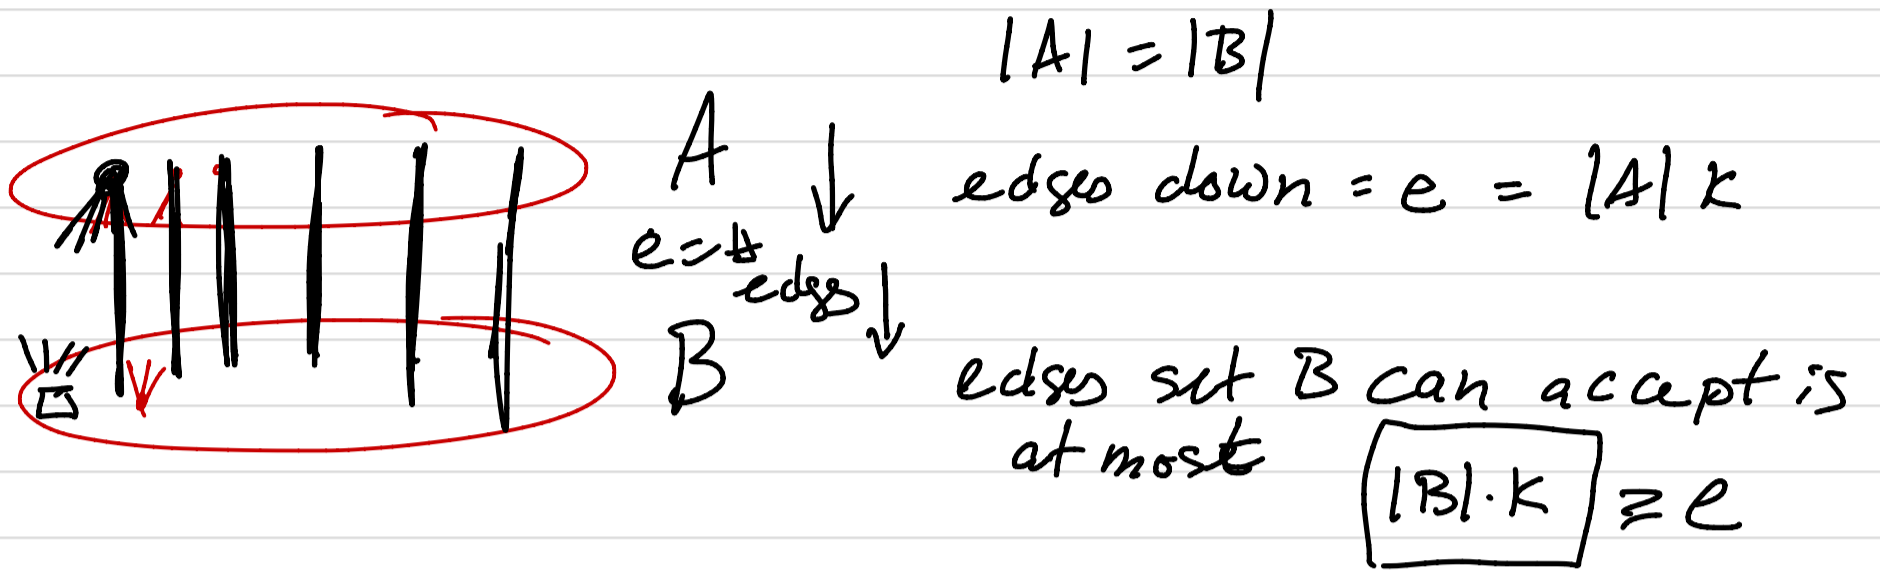 |A| = |B|
A
edges down = e = |A| k
e = # edgs
B
edges set B can accept is
at most
|B| · k ≥ e